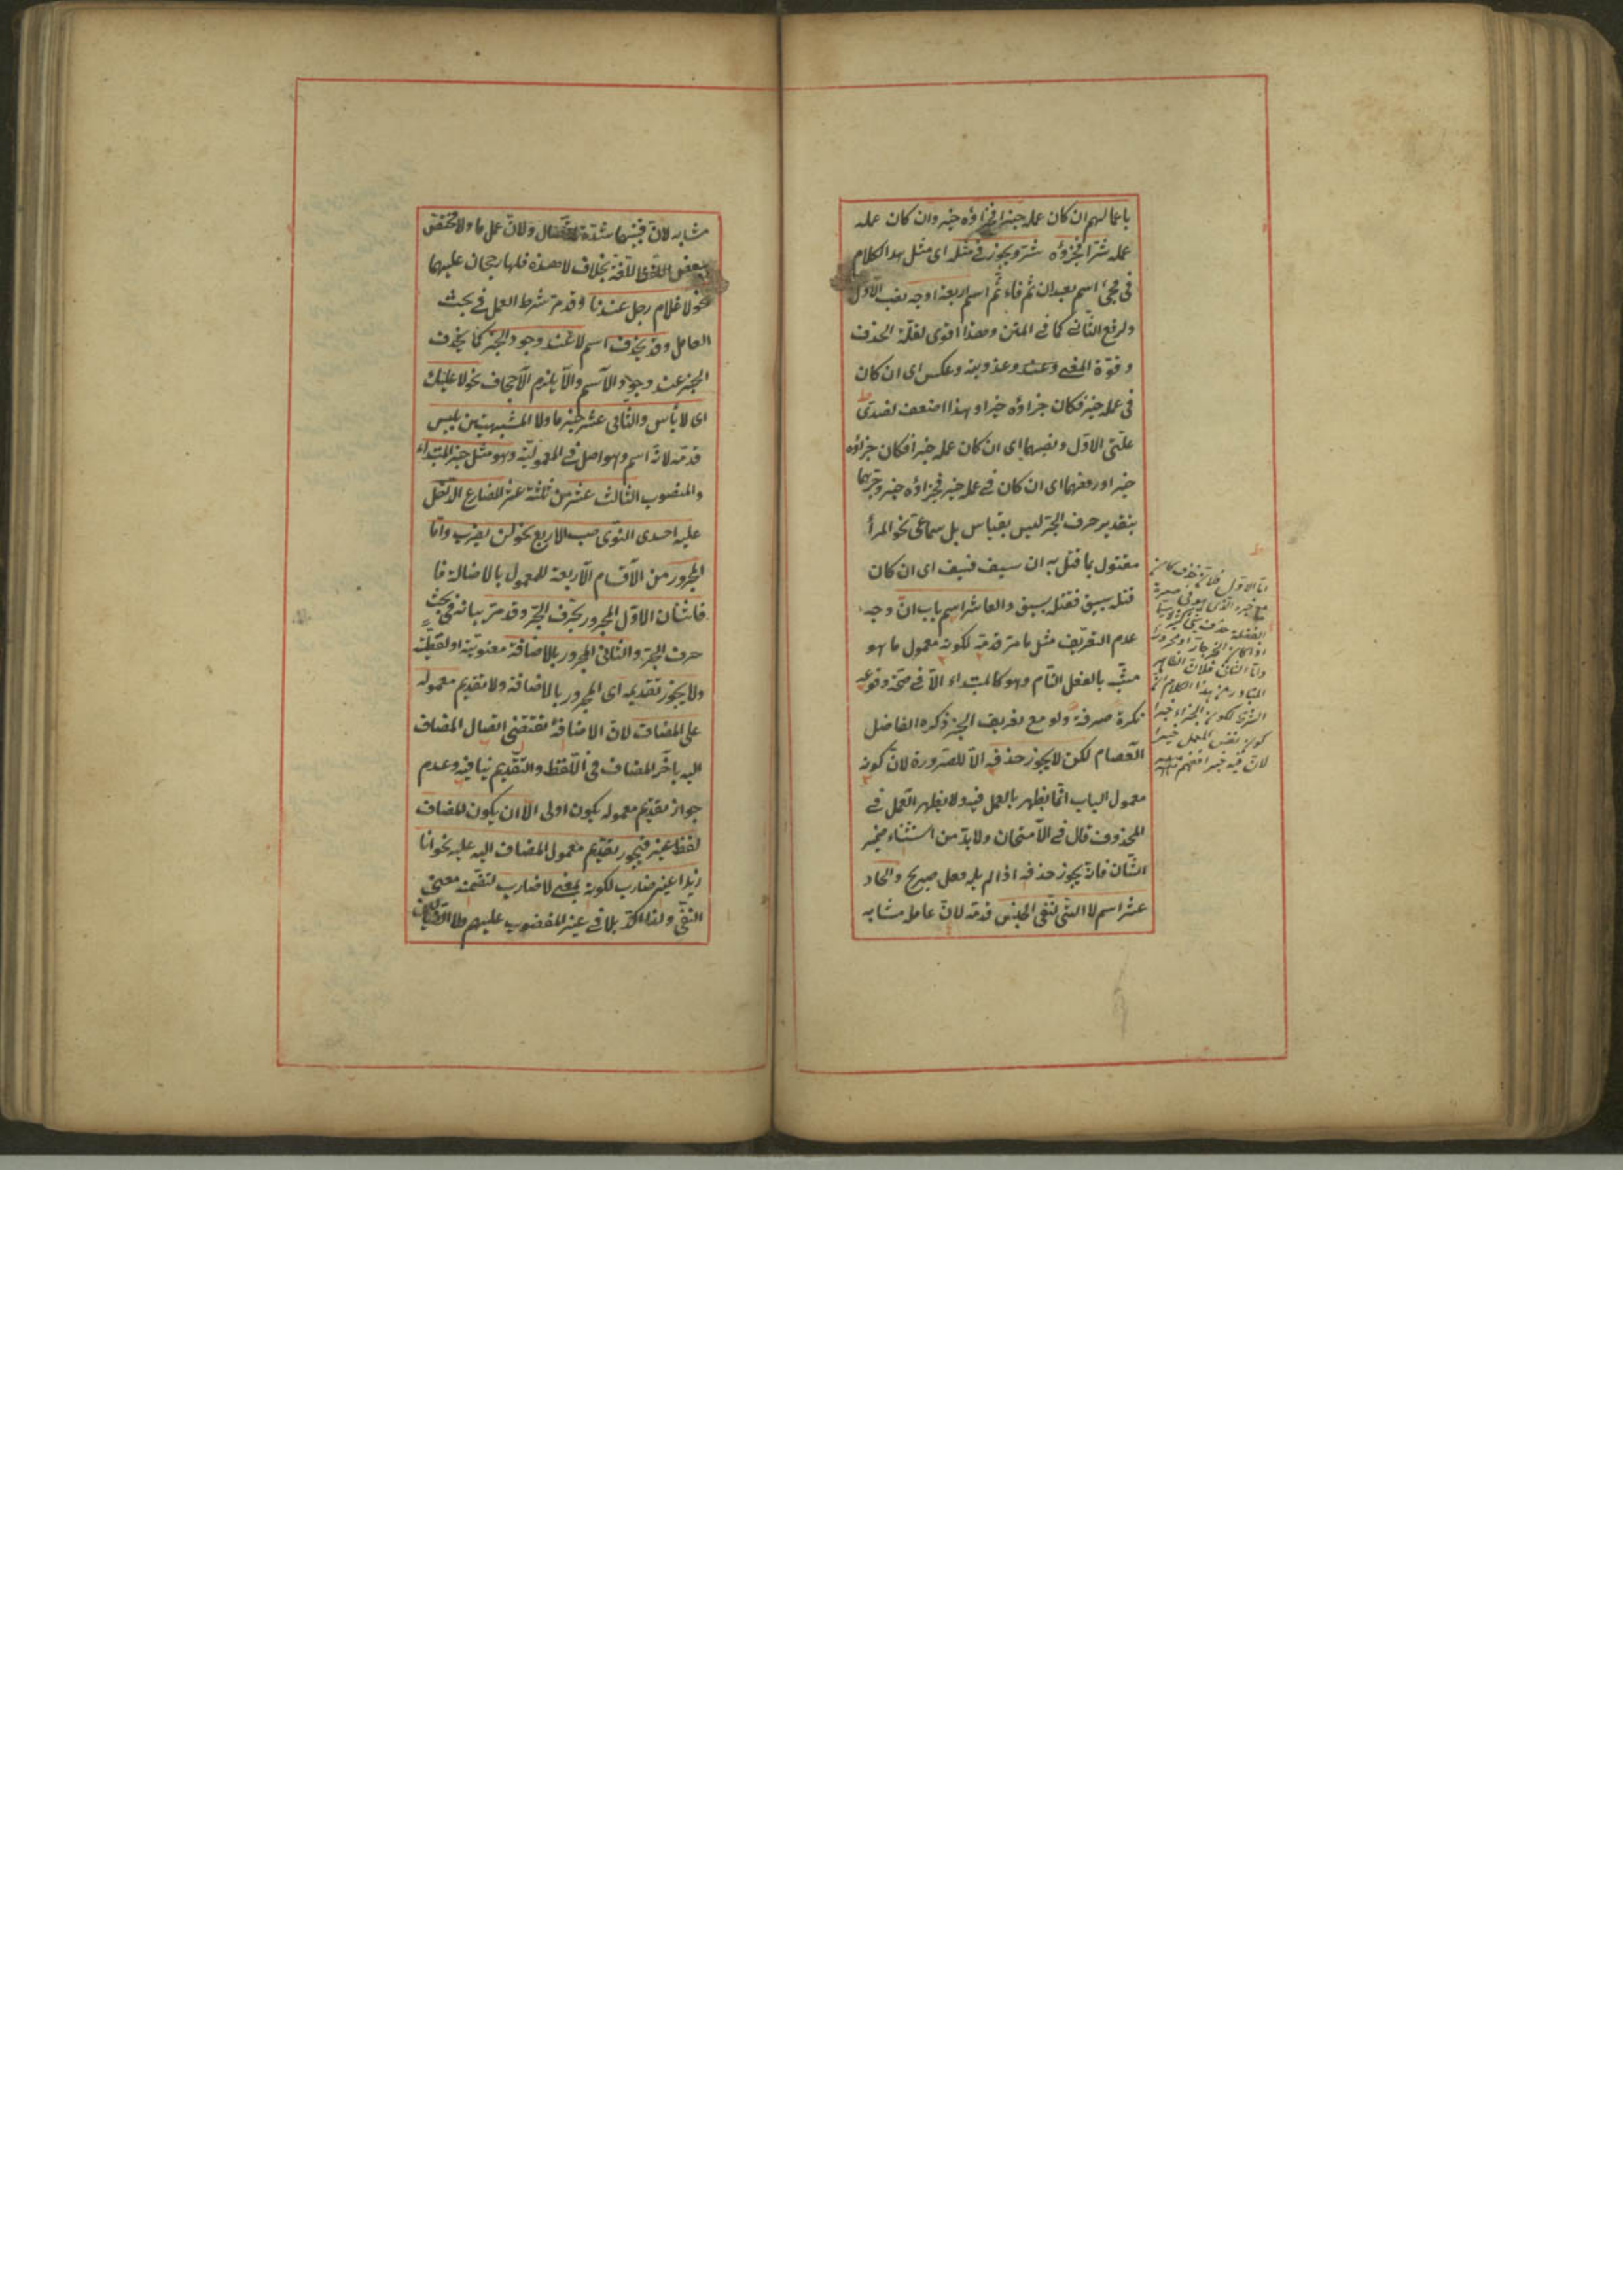 باعمالهم ان كان عمله خيرا فجزاؤه خير وان كان عمله
عمله شرا فجزؤه شر ويجوز في مثله اى مثل هذا الكلام
فى مجئ اسم بعد ان ثم فاء ثم اسم اربعة اوجه نصب الاول
ورفع الثانى كما فى المتن وهذا اقوى لقلة الحذف
وقوة المعنى وعكس اى ان كان
فى عمله خير فكان جزاؤه خيرا وهذا اضعف لضدى
علتى الاول ونصبهما اى ان كان عمله خيرا فكان جزاؤه
خيرا ورفعهما اى ان كان فى عمله خير فجزاؤه خير وجرهما
بتقدير حرف الجر ليس بقياس بل سماعى نحو المرأ
مقتول بما قتل به ان سيف فسيف اى ان كان
قتله بسيف فقتله بسيف والعاشر اسم باب ان وجه
عدم التعريف مثل ما مر قدمه لكونه معمول ما هو
مشبه بالفعل التام وهو كالمبتداء الا فى صحة وقوعه
نكرة صرفة ولو مع تعريف الخبر ذكره الفاضل
العصام لكن لا يجوز حذفه الا للضرورة لان كونه
معمول الباب انما يظهر بالعمل فيه ولا يظهر العمل فى
المحذوف قال فى الامتحان ولا بد من استثناء ضمير
الشان فانه يجوز حذفه اذا لم يله فعل صريح والحاد
عشر اسم لا التى لنفى الجنس قدمه لان عامله مشابه
اما الاول فلان حذف كان
مع خبره الذى هو فى صورة
الفضلة حذف شئ كثير
اذا كان الخبر جارا ومجرورا
واما الثانى فلان الظاهر
المتبادر من هذا الكلام ان
الشرط لكون الجزاء خيرا
كون نفس العمل خيرا
لان فيه خيرا فافهم
مشابه لان فيهما شدة ولان عمل ما ولا مختص
ببعض اللغة بخلاف لا هذه فلها رجحان عليهما
نحو لا غلام رجل عندنا وقد مر شرط العمل فى بحث
العامل وقد يحذف اسم لا عند وجود الخبر كما يحذف
الخبر عند وجود الاسم والا يلزم الاجحاف نحو لا عليك
اى لا بأس والثانى عشر خبر ما ولا المشبهتين بليس
قدمه لانه اسم وهو اصل فى المعمولية وهو مثل خبر المبتداء
والمنصوب الثالث عشر من ثلثة عشر المضارع الدخل
عليه احدى النواصب الاربع نحو لن يضرب واما
المجرور من الاقسام الاربعة للمعمول بالاصالة فا
فاثنان الاول المجرور بحرف الجر وقد مر بيانه فى بحث
حرف الجر والثانى المجرور بالاضافة معنوية او لفظية
ولا يجوز تقديمه اى المجرور بالاضافة ولا تقديم معموله
على المضاف لان الاضافة تقتضى اتصال المضاف
اليه بآخر المضاف فى اللفظ والتقديم ينافيه وعدم
جواز تقديم معموله يكون اولى الا ان يكون المضاف
لفظ غير فيجوز تقديم معمول المضاف اليه عليه نحو انا
زيدا غير ضارب لكونه بمعنى لا ضارب لتضمنه معنى
النفى ولذا اكد بلا فى غير المغضوب عليهم ولا الضالين